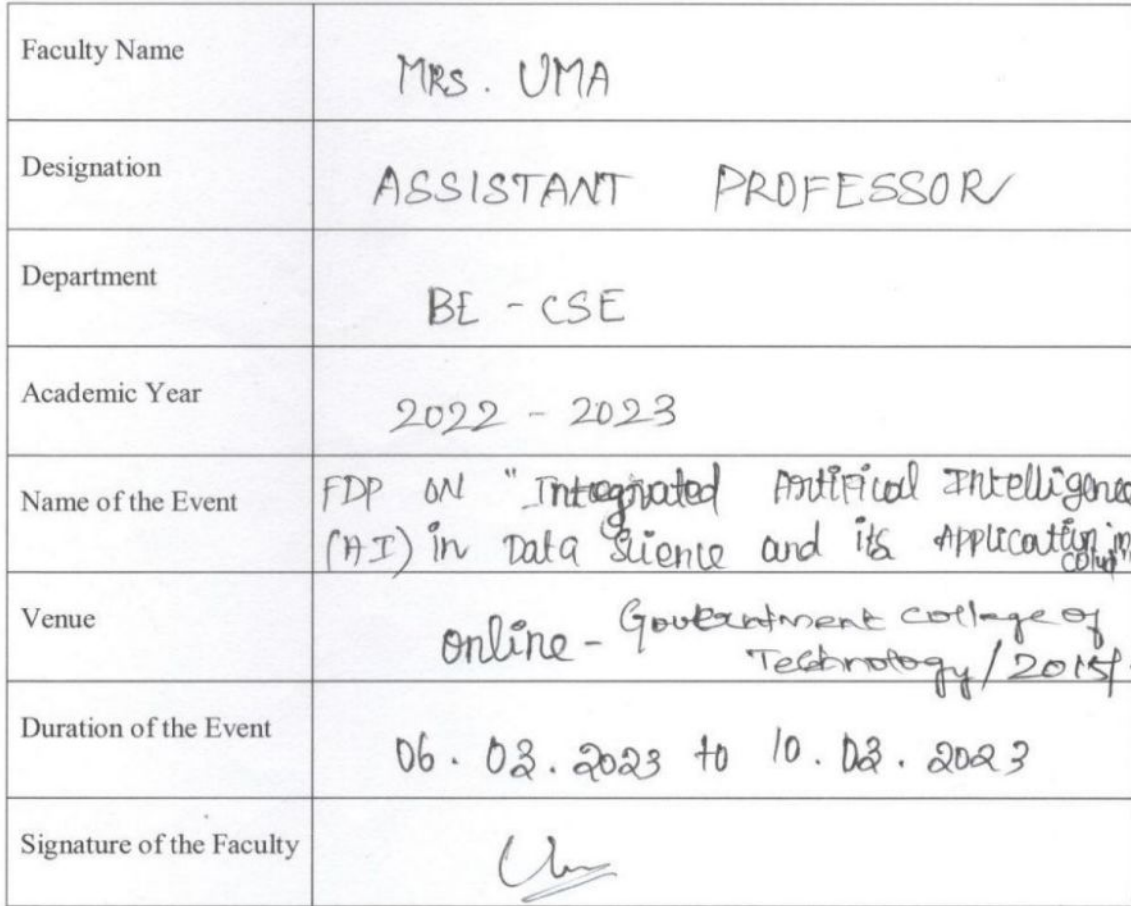 Faculty Name
MRS. UMA
Designation
ASSISTANT PROFESSOR
Department
BE - CSE
Academic Year
2022 - 2023
Name of the Event
FDP ON "Integrated Artifical Intelligence
(AI) in Data Science and its Application in
Venue
online - Government college of
Technology/
Duration of the Event
06. 03. 2023 to 10. 03. 2023
Signature of the Faculty